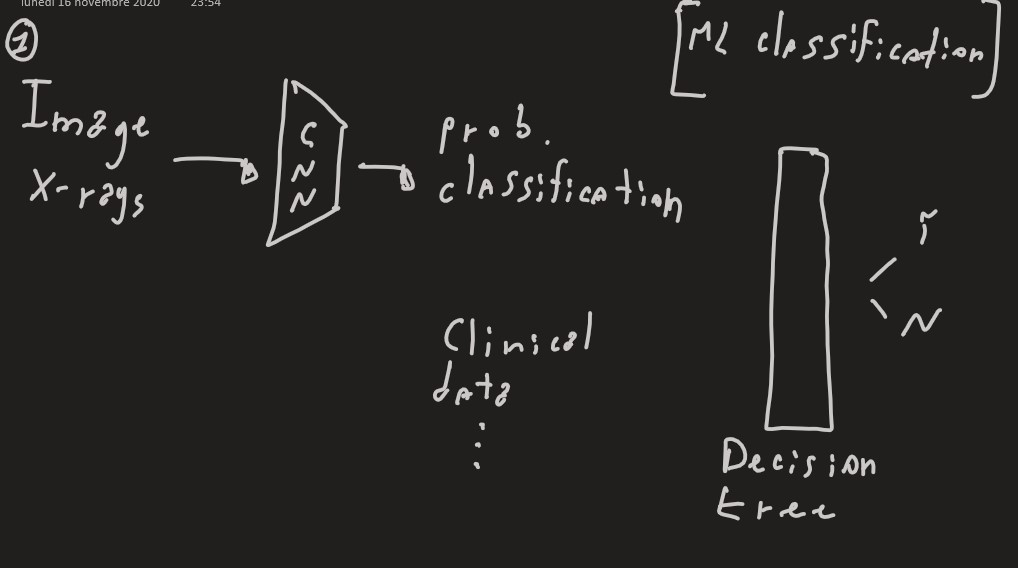 lunedì 16 novembre 2020 23:54
1
[ML classification]
Image
X-rays
CNN
prob.
classification
Clinical
data
⋮
N
Decision
tree